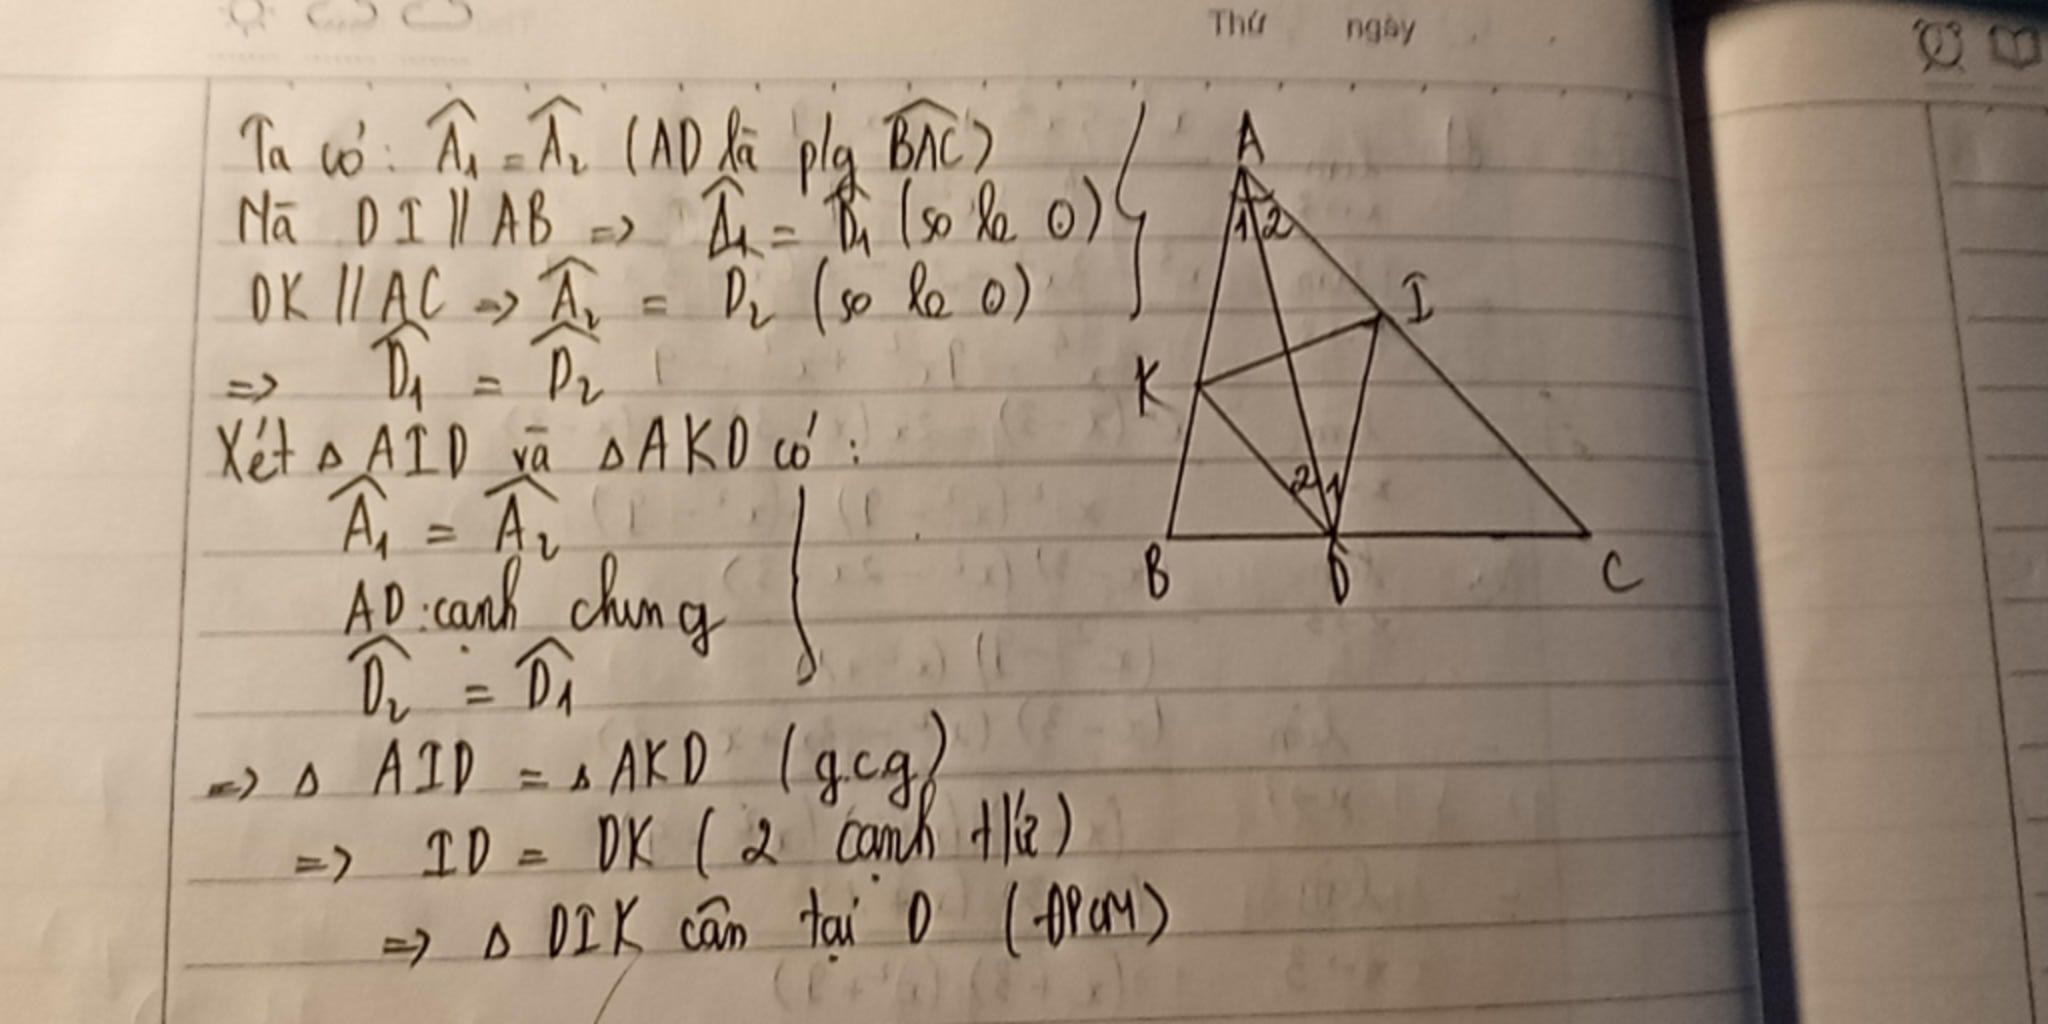 Thứ ngày
Ta có: Â₁ = Â₂ (AD là p/g BAC)
Mà DI // AB => Â₁ = D̂₁ (so le O)
DK // AC => Â₂ = D₂ (so le O)
=> D̂₁ = D̂₂
Xét Δ AID và Δ AKD có:
Â₁ = Â₂
AD: cạnh chung
D̂₂ = D̂₁
=> Δ AID = Δ AKD (g.c.g)
=> ID = DK (2 cạnh t/ứ)
=> Δ DIK cân tại D (ĐPCM)
A
1 2
I
K
2 1
B D C